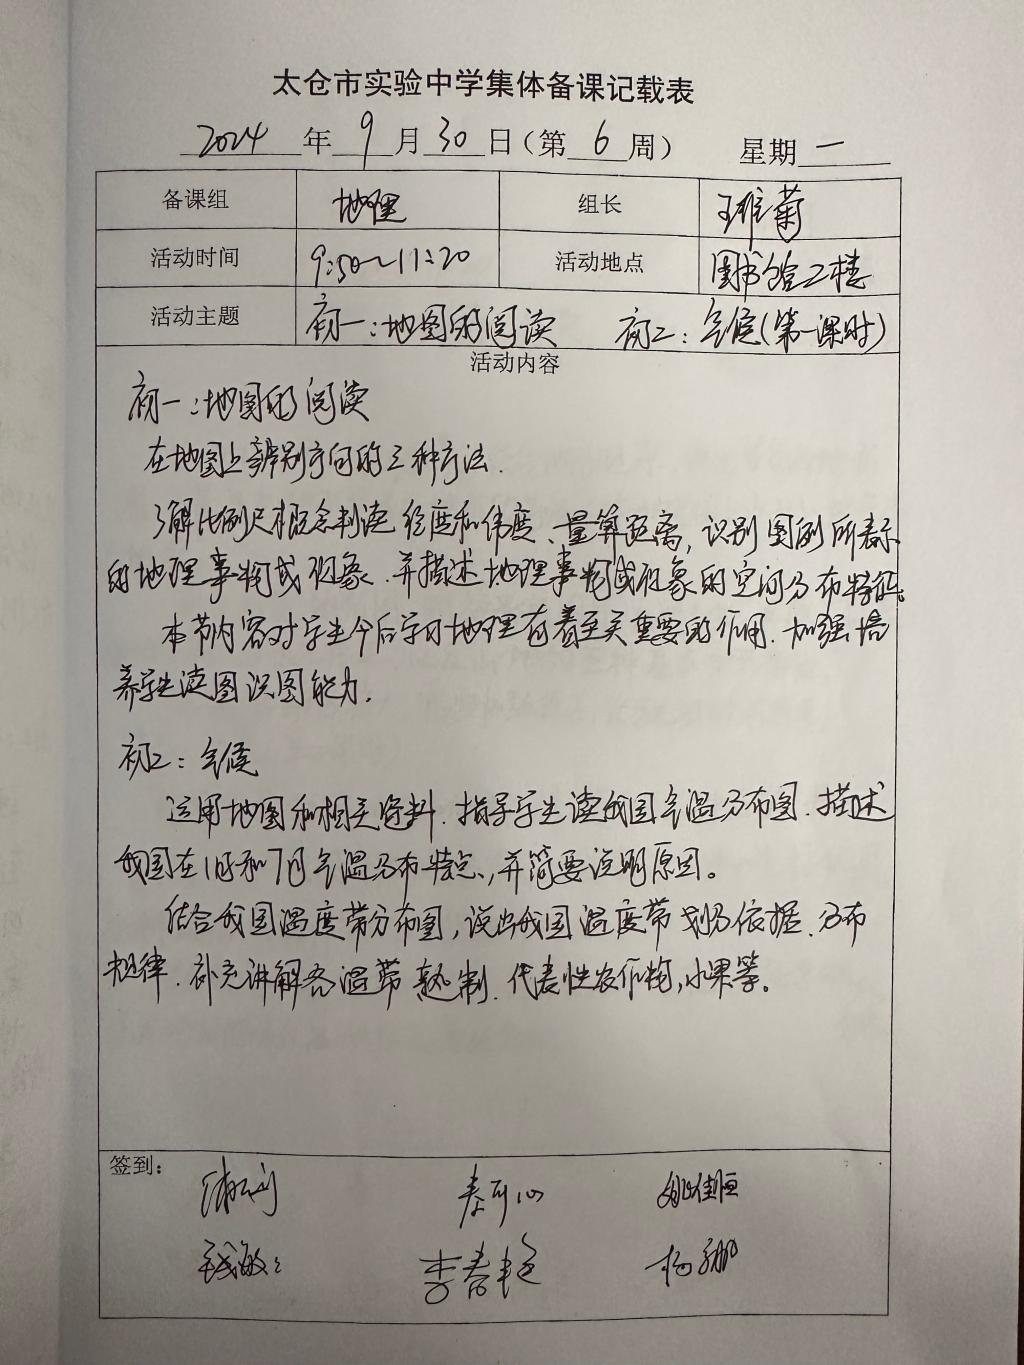 太仓市实验中学集体备课记载表
2024 年 9 月 30 日（第 6 周） 星期 一
备课组 地理 组长 王维菊
活动时间 9:50～11:20 活动地点 图书馆二楼
活动主题 初一：地图的阅读 初二：气候（第一课时）
活动内容
初一：地图的阅读
在地图上辨别方向的三种方法.
了解比例尺概念判读经度和纬度、量算距离,识别图例所表示
的地理事物或现象.并描述地理事物或现象的空间分布特征。
本节内容对学生今后学习地理有着至关重要的作用.加强培
养学生读图识图能力.
初二：气候
运用地图和相关资料.指导学生读我国气温分布图.描述
我国在1月和7月气温分布特点,并简要说明原因。
结合我国温度带分布图,说出我国温度带划分依据.分布
规律.补充讲解各温带熟制.代表性农作物,水果等。
签到：
秦可心 姚佳恒
钱敏 李春艳 杨娜